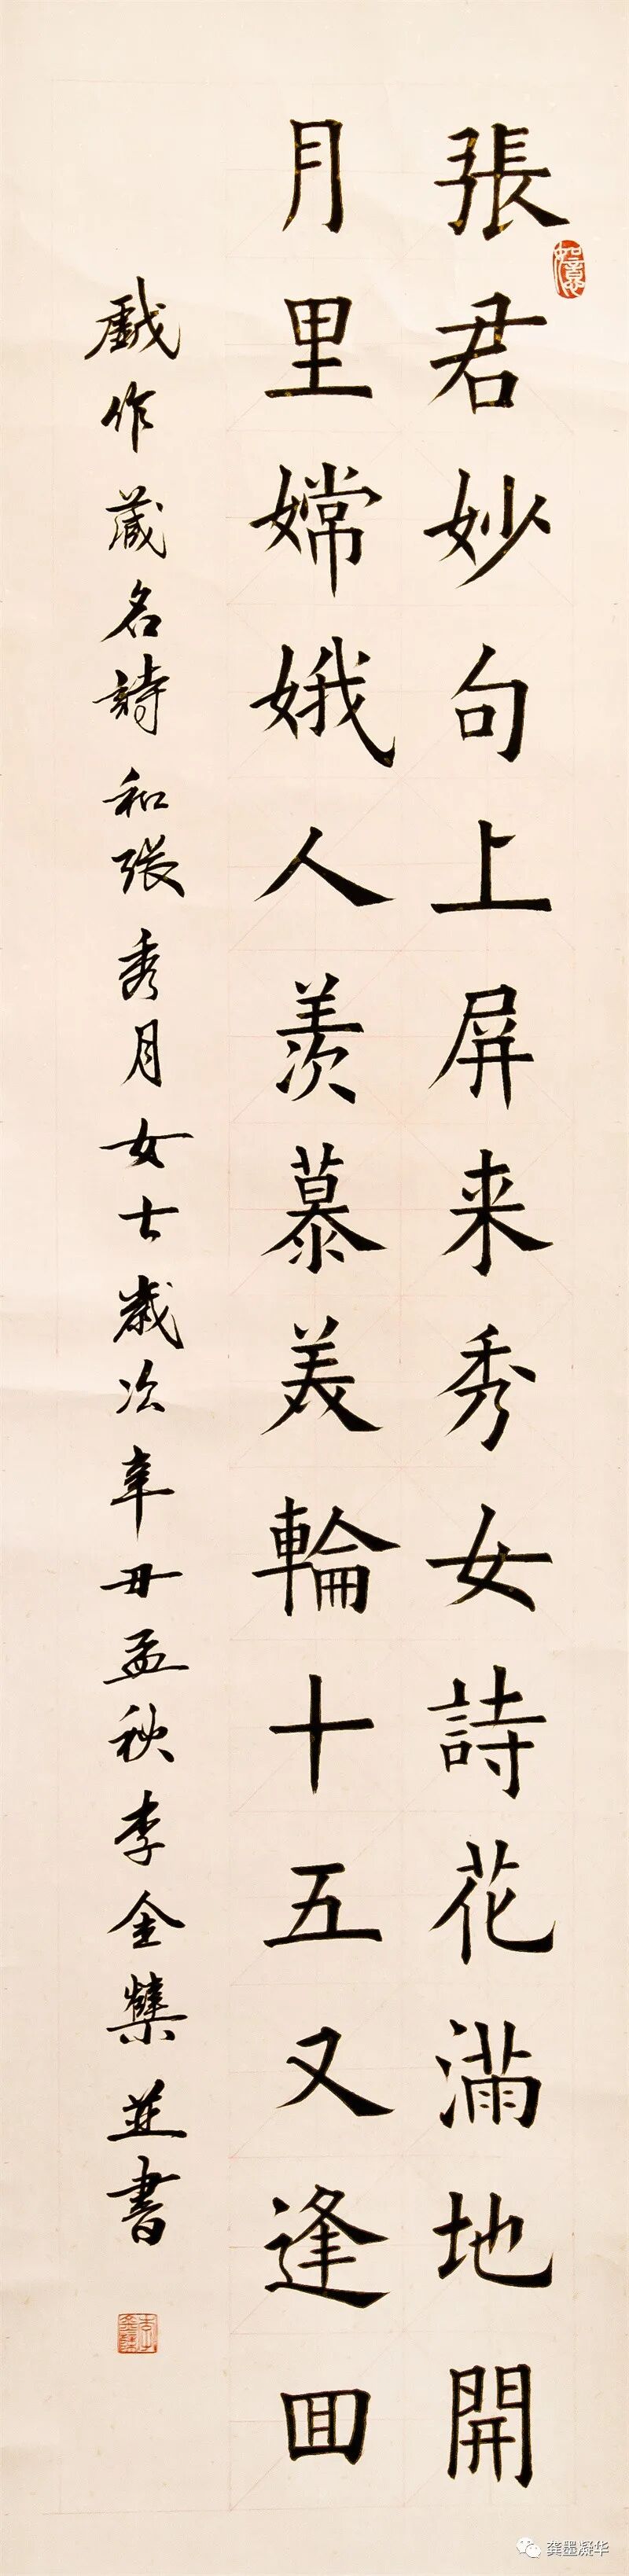 張君妙句上屏来秀女詩花滿地開
月里嫦娥人羨慕美輪十五又逢囬
戲作藏名詩和張秀月女士歲次辛丑孟秋李金並書
如意
龚墨凝华